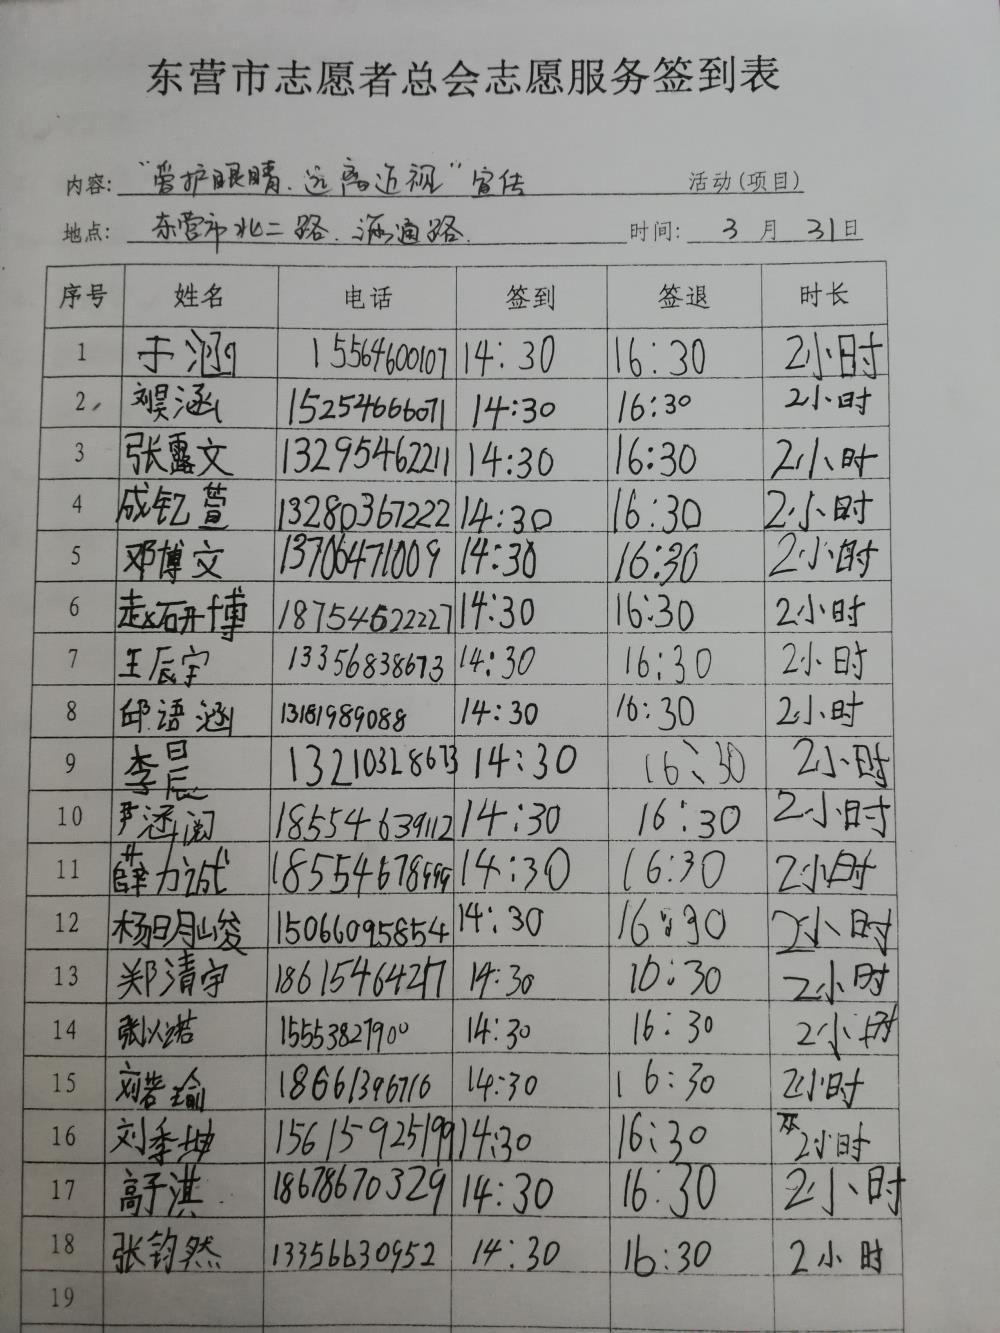 东营市志愿者总会志愿服务签到表
内容: “爱护眼睛、远离近视”宣传 活动(项目)
地点: 东营市北二路、海通路. 时间: 3 月 31 日
序号 姓名 电话 签到 签退 时长
1 于涵 15564600107 14:30 16:30 2小时
2 刘昊涵 15254666071 14:30 16:30 2小时
3 张露文 13295462211 14:30 16:30 2小时
4 成钇萱 13280367222 14:30 16:30 2小时
5 邓博文 13706471009 14:30 16:30 2小时
6 赵研博 18754622227 14:30 16:30 2小时
7 王辰宇 13356838673 14:30 16:30 2小时
8 邱语涵 13181989088 14:30 16:30 2小时
9 李晨 13210328673 14:30 16:30 2小时
10 尹涵阅 18554639112 14:30 16:30 2小时
11 薛力诚 18554678999 14:30 16:30 2小时
12 杨明峻 15066095854 14:30 16:30 2小时
13 郑清宇 14:30 16:30 2小时
14 张以诺 15553827900 14:30 16:30 2小时
15 刘若瑜 18661396716 14:30 16:30 2小时
16 刘季坤 15615925199 14:30 16:30 2小时
17 高于淇 18678670329 14:30 16:30 2小时
18 张钧然 13356630952 14:30 16:30 2小时
19